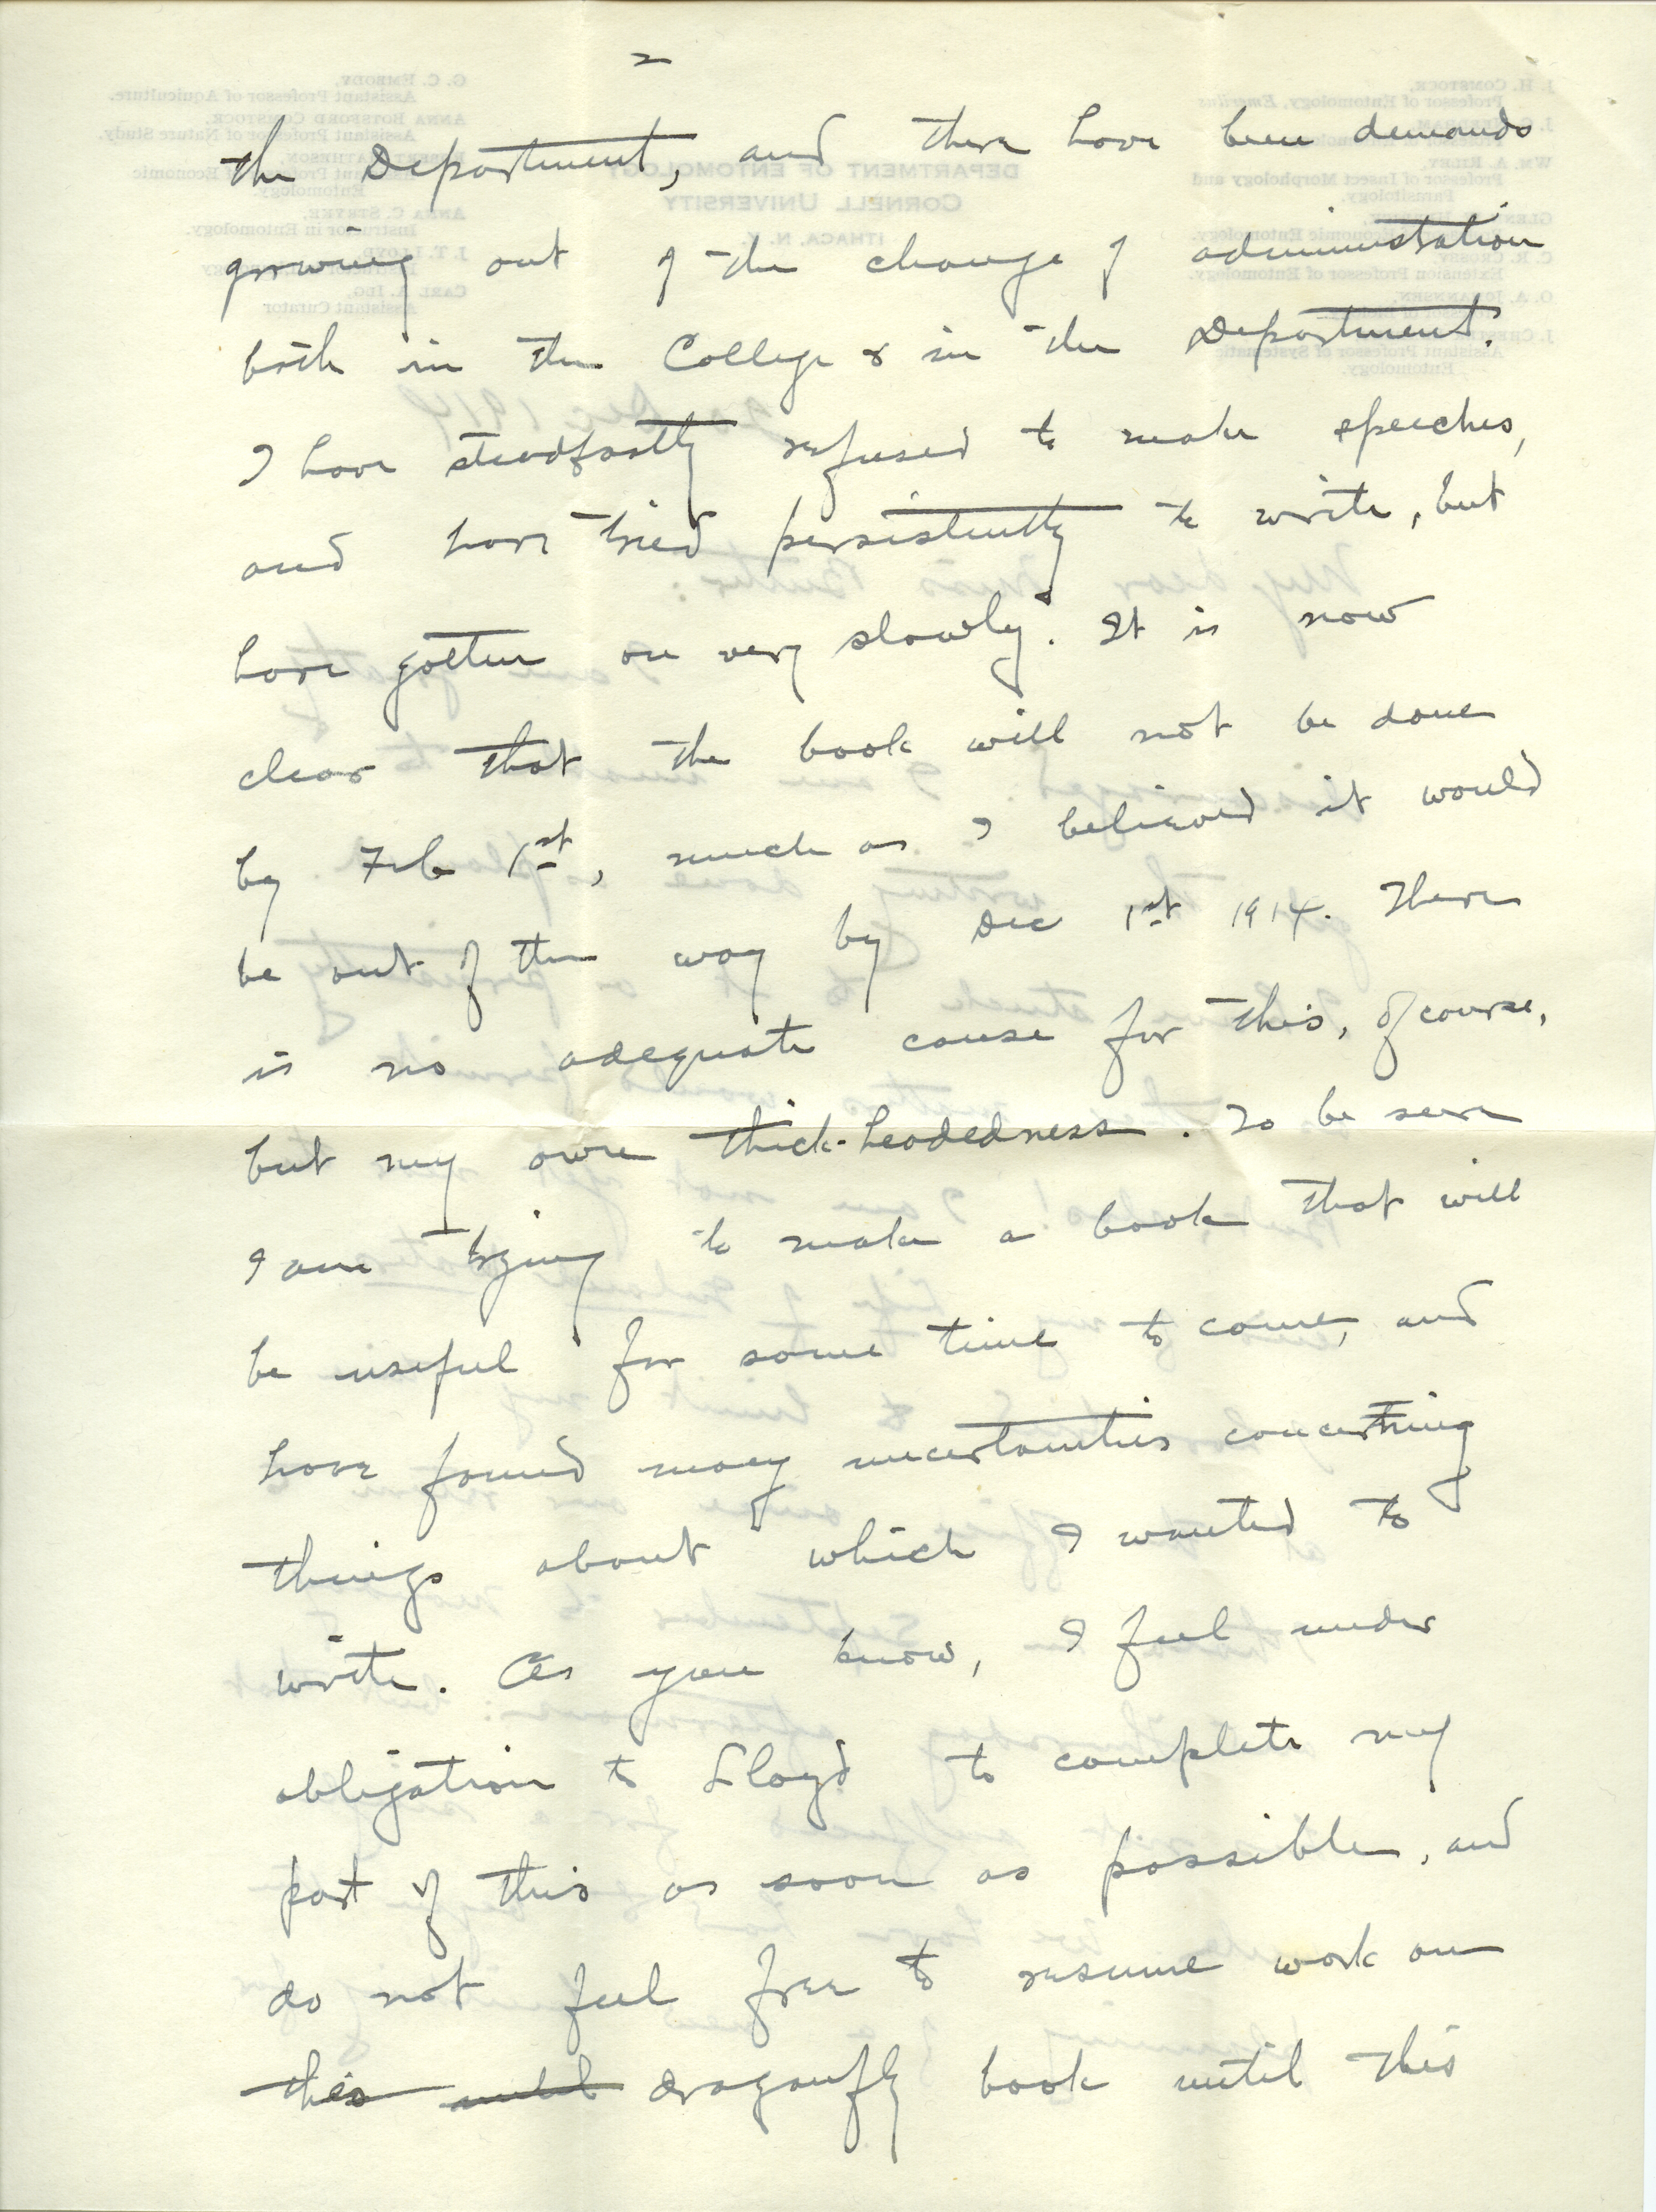 2
the Department, and there have been demands
growing out of the change of administration
both in the College & in the Department.
I have steadfastly refused to make speeches,
and have tried persistently to write, but
have gotten on very slowly. It is now
clear that the book will not be done
by Feb 1st, much as I believed it would
be out of the way by Dec 1st 1914. There
is no adequate cause for this, of course,
but my own thick-headedness. To be sure
I am trying to make a book that will
be useful for some time to come, and
have found many uncertainties concerning
things about which I wanted to
write. As you know, I feel under
obligation to Lloyd to complete my
part of this as soon as possible, and
do not feel free to resume work on
this until dragonfly book until this